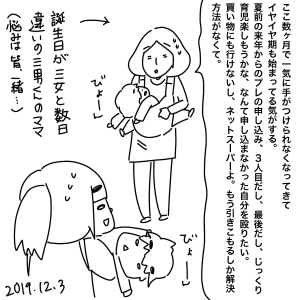 ここ数ヶ月で一気に手がつけられなくなってきて
イヤイヤ期も始まってる気がする。
夏前の来年からのプレの申し込み、3人目だし、最後だし、じっくり
育児楽しもうかな、なんて申し込まなかった自分を殴りたい。
買い物にも行けないし、ネットスーパーよ。もう引きこもるしか解決
方法がなくて。
びょーん
誕生日が三女と数日
違いの三男くんのママ
(悩みは皆一緒…)
びょーん
2019.12.3